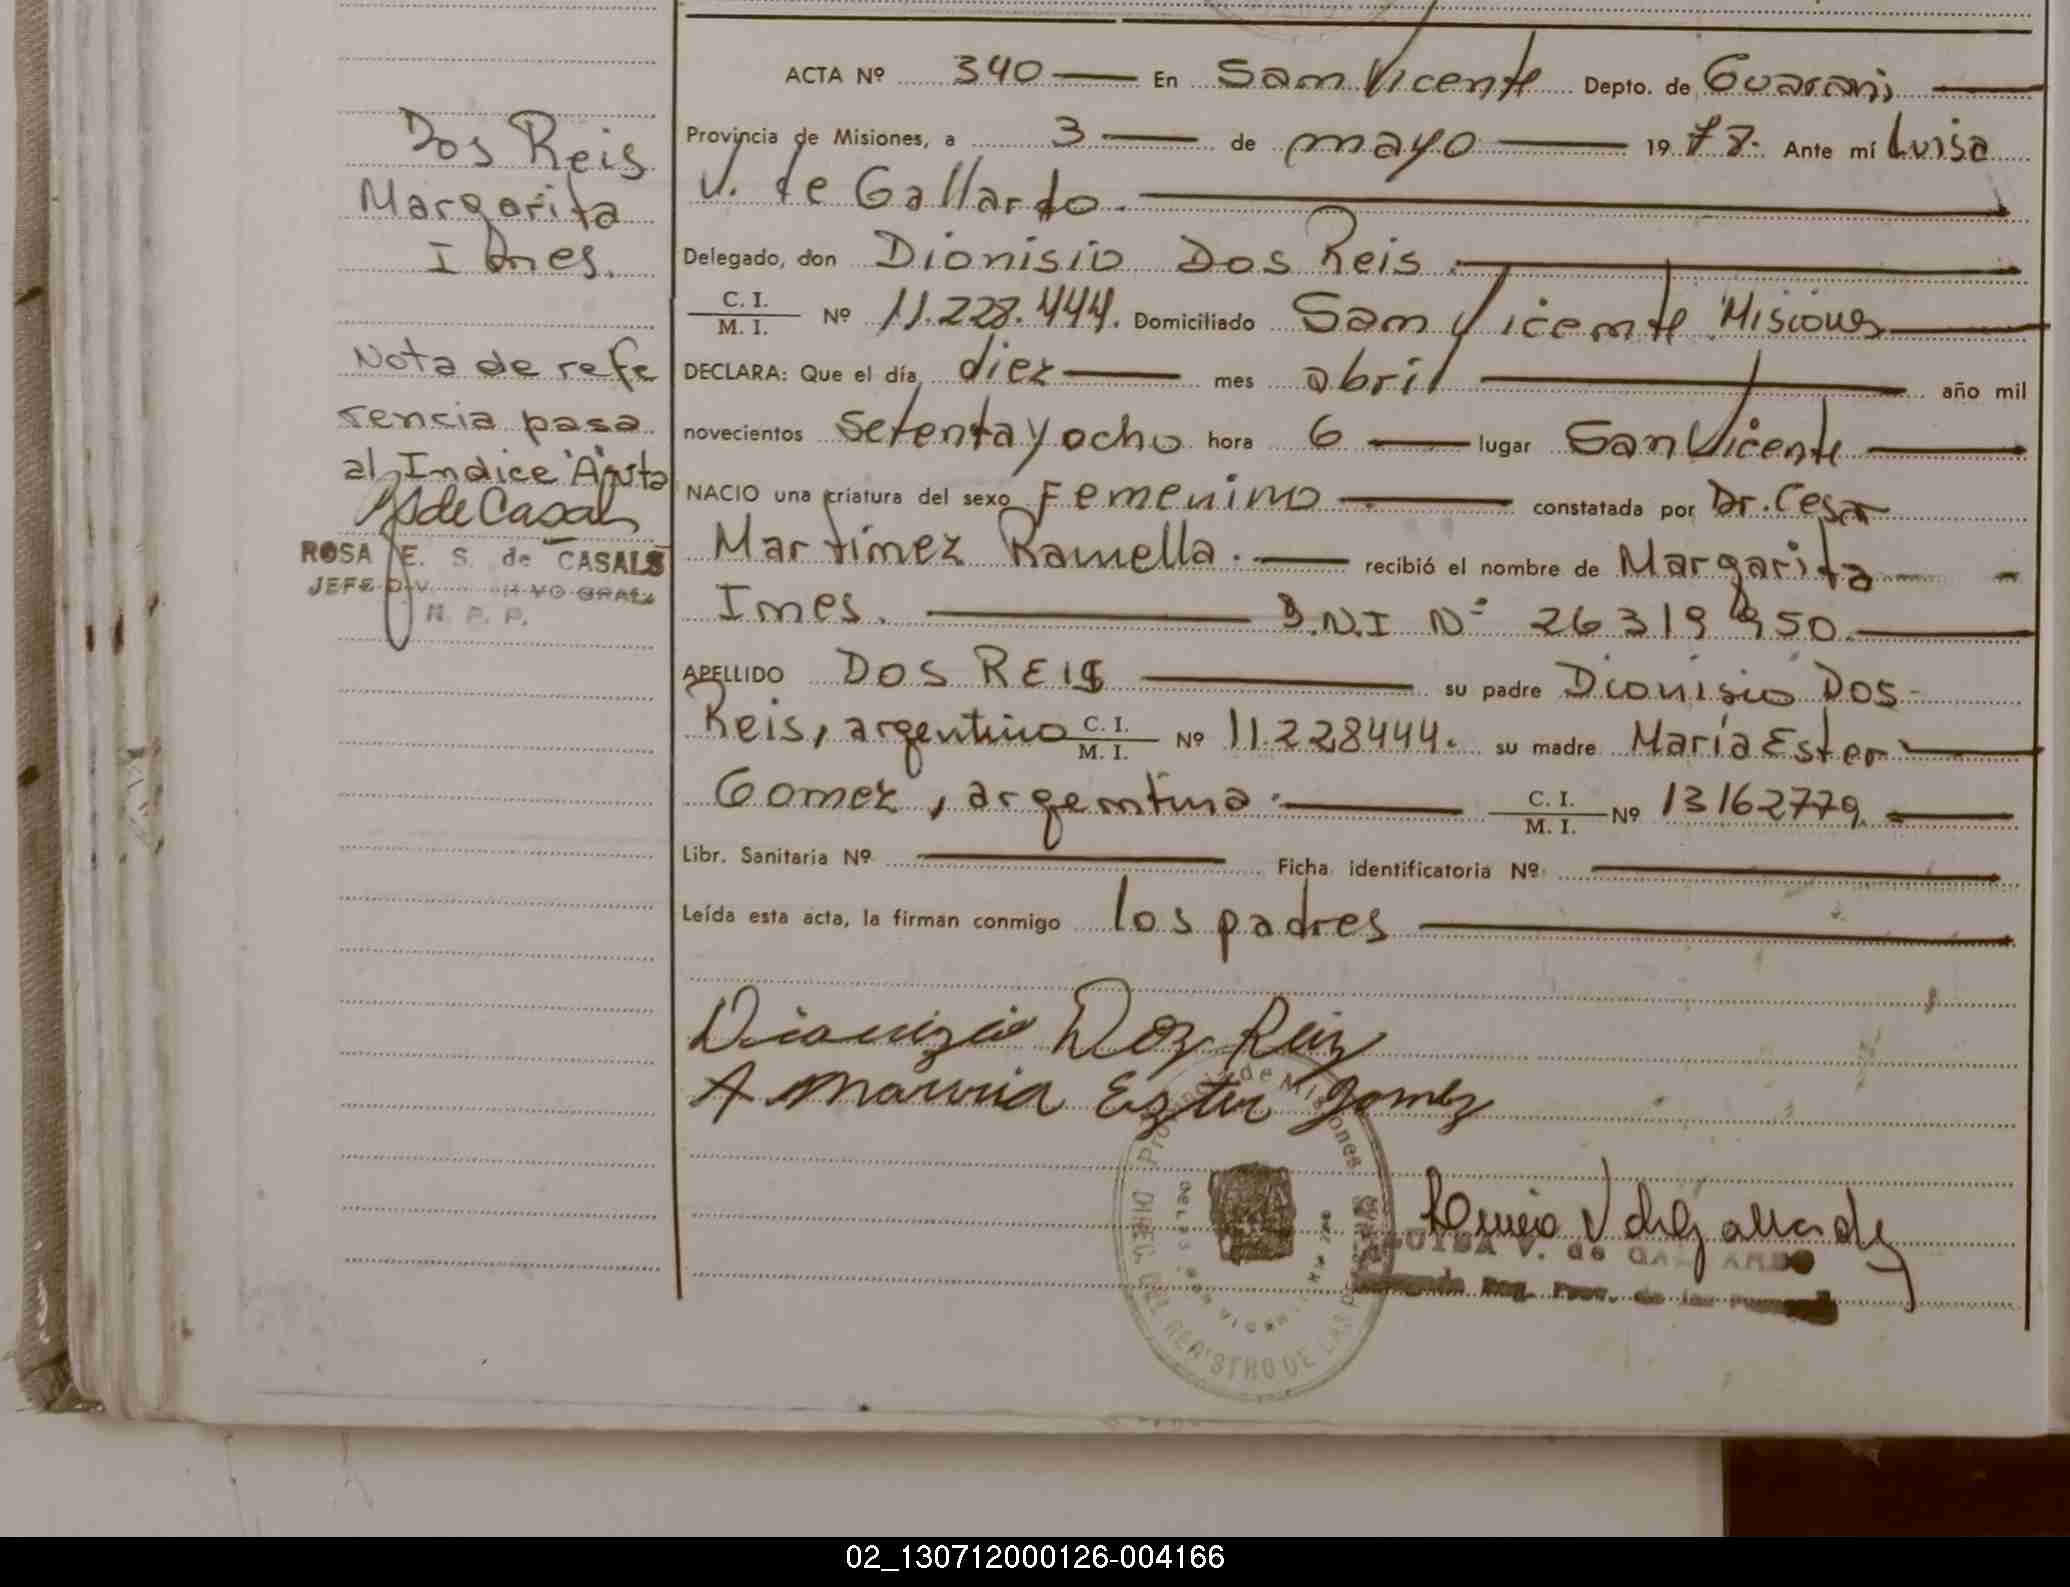 Dos Reis
Margarita
Ines.
Nota de refe
rencia pasa
al Indice "A" justa
ROSA E. S. de CASALS
JEFE DIV.
R. P. P.
ACTA Nº 340 En San Vicente Depto. de Guarani
Provincia de Misiones, a 3 de mayo 1978. Ante mí Luisa
V. de Gallardo.
Delegado, don Dionisio Dos Reis.
C. I. / M. I. Nº 11.228.444. Domiciliado San Vicente Misiones
DECLARA: Que el día, diez mes abril año mil
novecientos setenta y ocho hora 6 lugar San Vicente
NACIO una criatura del sexo Femenino constatada por Dr. Cesar
Martinez Ramella. recibió el nombre de Margarita
Ines. D.N.I Nº 26319950.
APELLIDO DOS REIS su padre Dionisio Dos
Reis, argentino C. I. / M. I. Nº 11.228444. su madre María Ester
Gomez, argentina. C. I. / M. I. Nº 13162779.
Libr. Sanitaria Nº Ficha identificatoria Nº
Leída esta acta, la firman conmigo los padres
Dionizio Doz Reiz
Ezter gomez
Provincia de Misiones
DIREC. DEL REGISTRO DE LAS
LUISA V. de GALLARDO
02_130712000126-004166